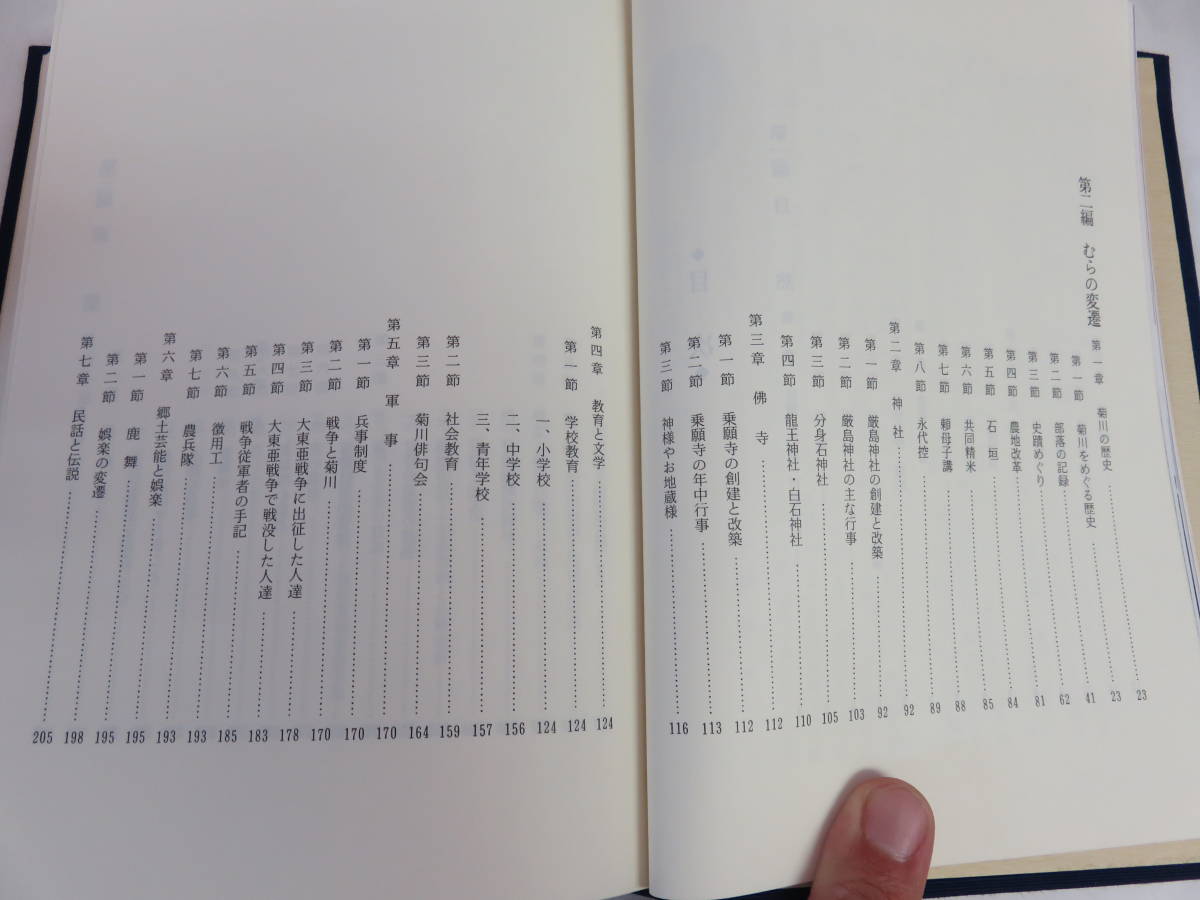 第二編 むらの変遷
第一章 菊川の歴史 …… 23
第一節 菊川をめぐる歴史 …… 23
第二節 部落の記録 …… 41
第三節 史蹟めぐり …… 62
第四節 農地改革 …… 81
第五節 石垣 …… 84
第六節 共同精米 …… 85
第七節 頼母子講 …… 88
第八節 永代控 …… 89
第二章 神社 …… 92
第一節 厳島神社の創建と改築 …… 92
第二節 厳島神社の主な行事 …… 103
第三節 分身石神社 …… 105
第四節 龍王神社・白石神社 …… 110
第三章 佛寺 …… 112
第一節 乗願寺の創建と改築 …… 112
第二節 乗願寺の年中行事 …… 113
第三節 神様やお地蔵様 …… 116
第四章 教育と文学 …… 124
第一節 学校教育 …… 124
一、小学校 …… 124
二、中学校 …… 156
三、青年学校 …… 157
第二節 社会教育 …… 159
第三節 菊川俳句会 …… 164
第五章 軍事 …… 170
第一節 兵事制度 …… 170
第二節 戦争と菊川 …… 170
第三節 大東亜戦争に出征した人達 …… 178
第四節 大東亜戦争で戦没した人達 …… 183
第五節 戦争従軍者の手記 …… 185
第六節 徴用工 …… 193
第七節 農兵隊 …… 193
第六章 郷土芸能と娯楽 …… 195
第一節 鹿舞 …… 195
第二節 娯楽の変遷 …… 198
第七章 民話と伝説 …… 205